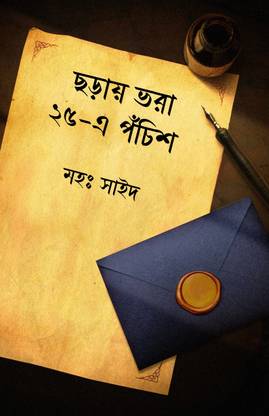 ছড়ায় ভরা
২৫-এ পঁচিশ
মহঃ সাইদ